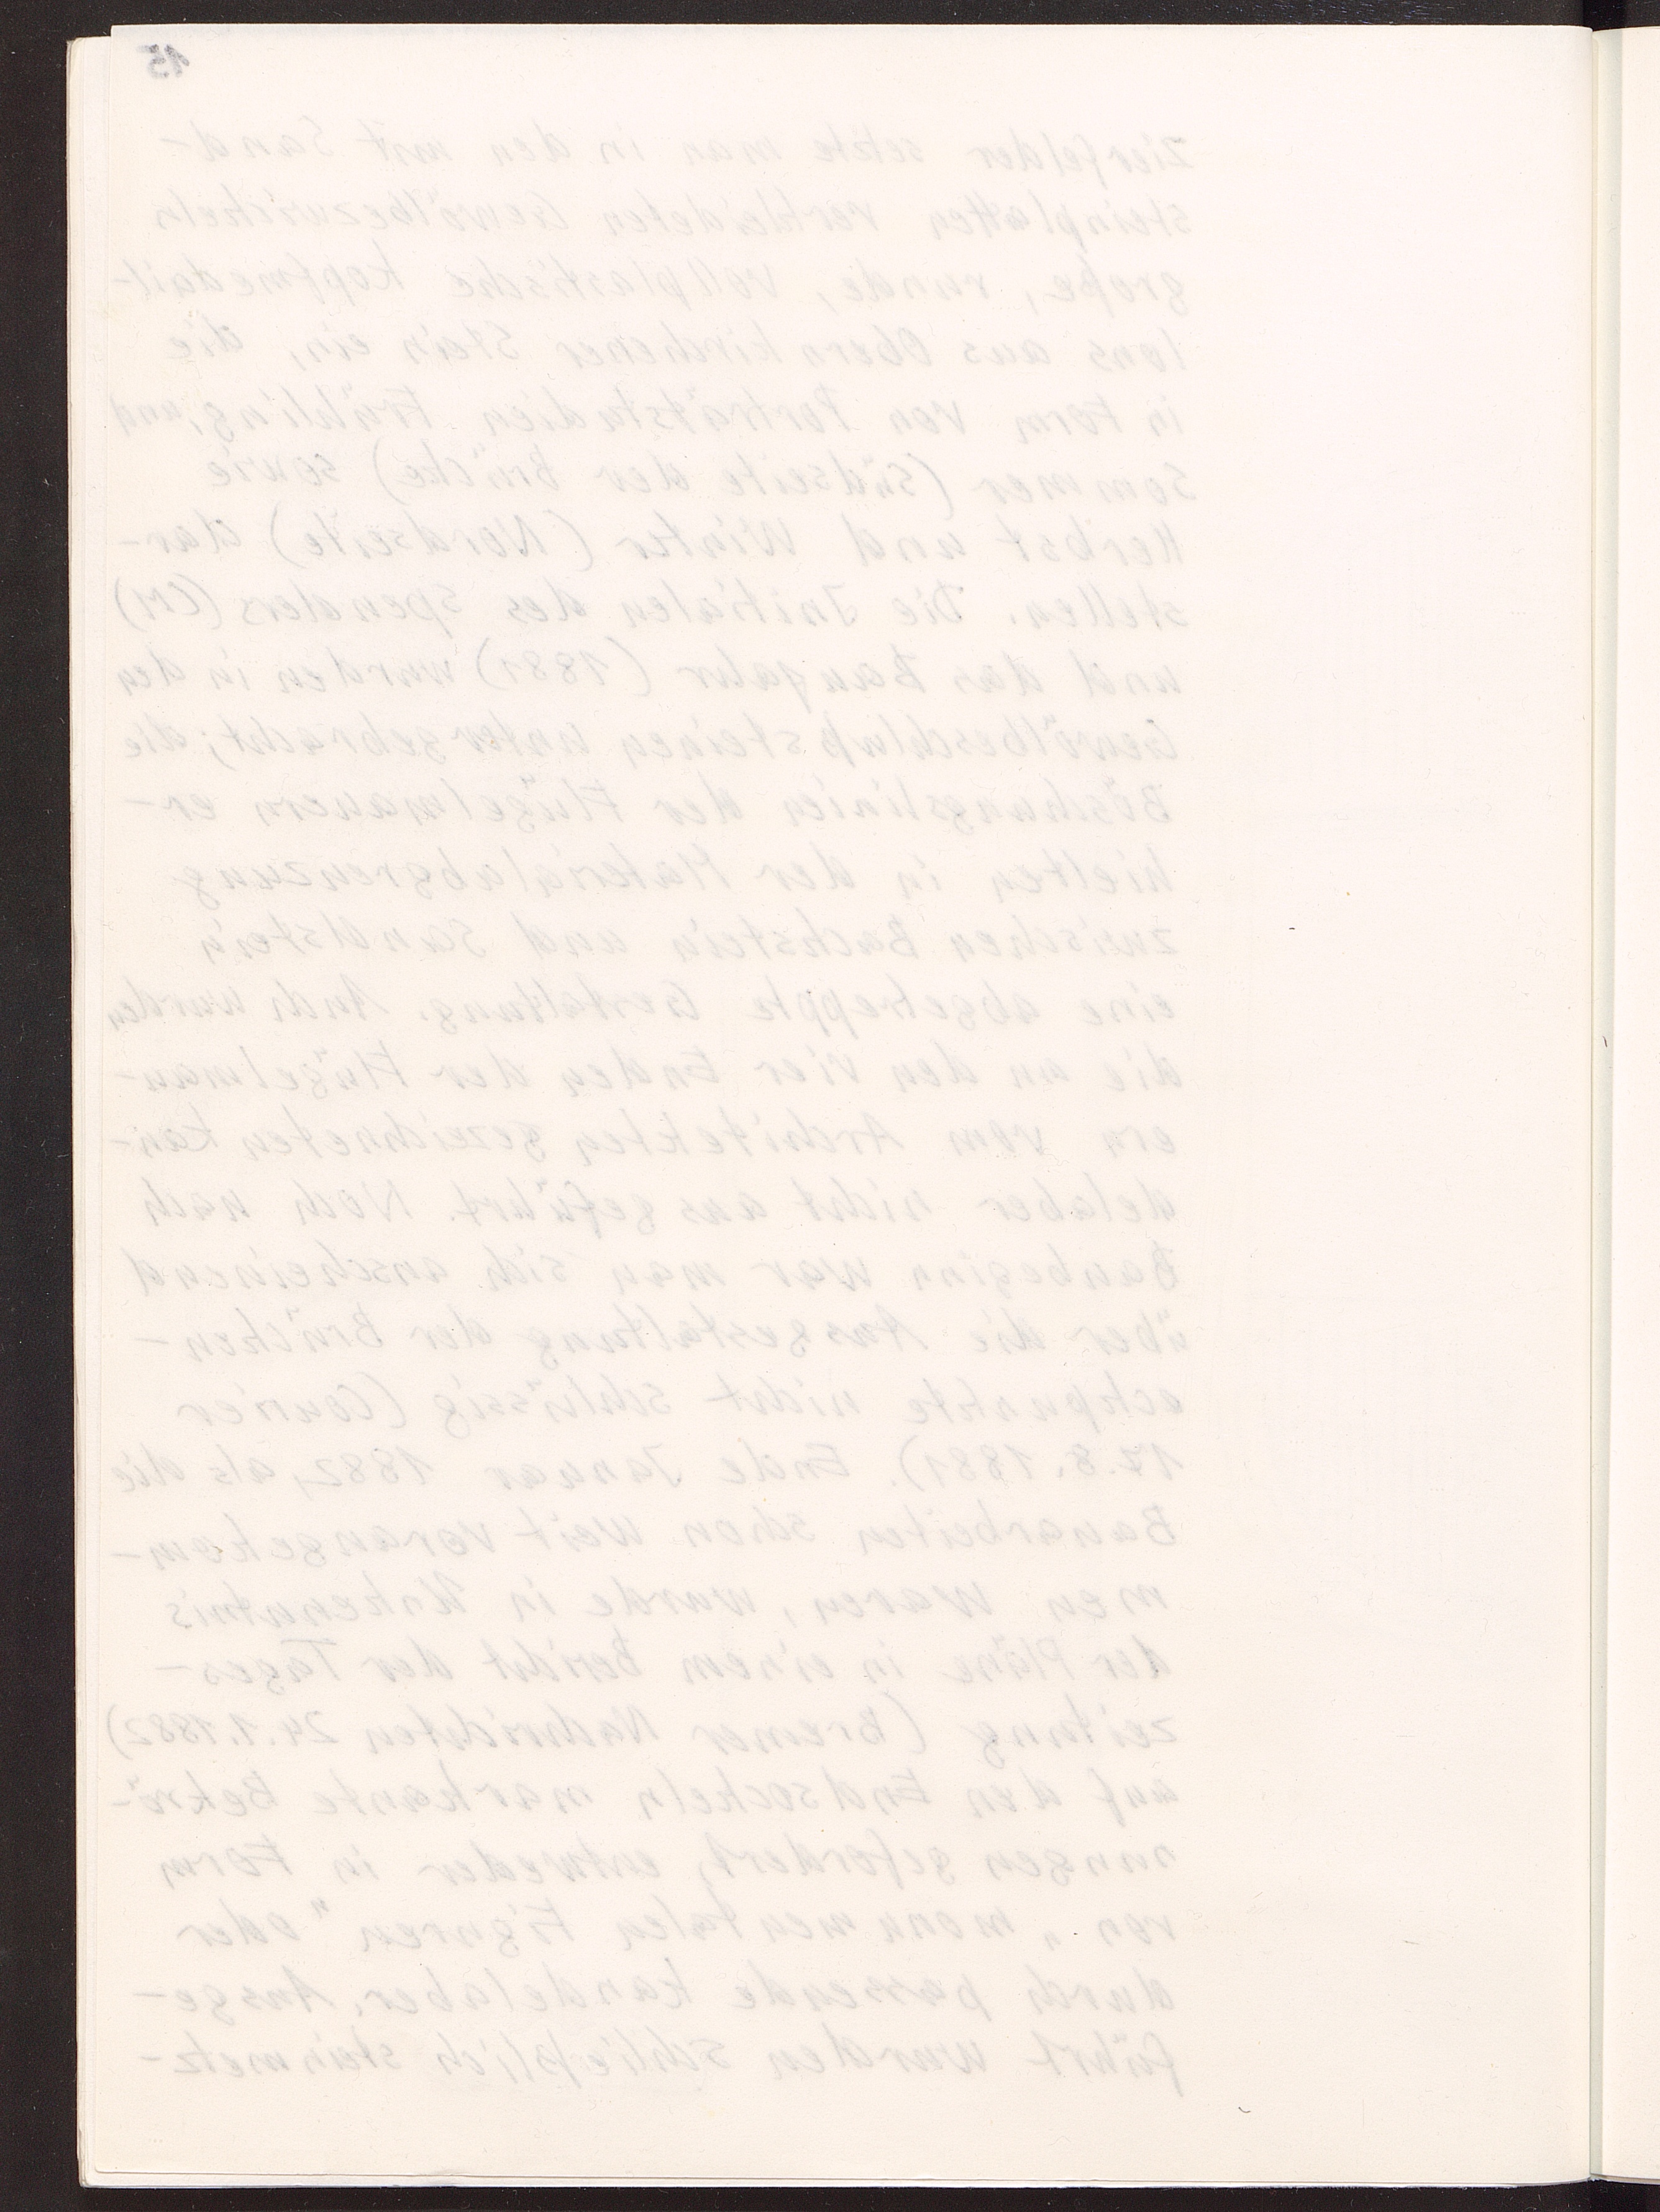 15
Zierfelder setzte man in den mit Sand-
steinplatten verkleideten Gewölbezwickeln
große, runde, vollplastische Kopfmedail-
lons aus Obernkirchener Stein ein, die
in Form von Porträtstudien Frühling und
Sommer (Südseite der Brücke) sowie
Herbst und Winter (Nordseite) dar-
stellen. Die Initialen des Spenders (CM)
und das Baujahr (1881) wurden in den
Gewölbeschlußsteinen untergebracht; die
Böschungslinien der Flügelmauern er-
hielten in der Materialabgrenzung
zwischen Backstein und Sandstein
eine abgetreppte Gestaltung. Auch wurden
die an den vier Enden der Flügelmau-
ern vom Architekten gezeichneten Kan-
delaber nicht ausgeführt. Noch nach
Baubeginn war man sich anscheinend
über die Ausgestaltung der Brücken-
eckpunkte nicht schlüssig (Courier
17.8.1881). Ende Januar 1882, als die
Bauarbeiten schon weit vorangekom-
men waren, wurde in Unkenntnis
der Pläne in einem Bericht der Tages-
zeitung (Bremer Nachrichten 24.1.1882)
auf den Endsockeln markante Bekrö-
nungen gefordert, entweder in Form
von „monumentalen Figuren" oder
durch passende Kandelaber. Ausge-
führt wurden schließlich steinmetz-